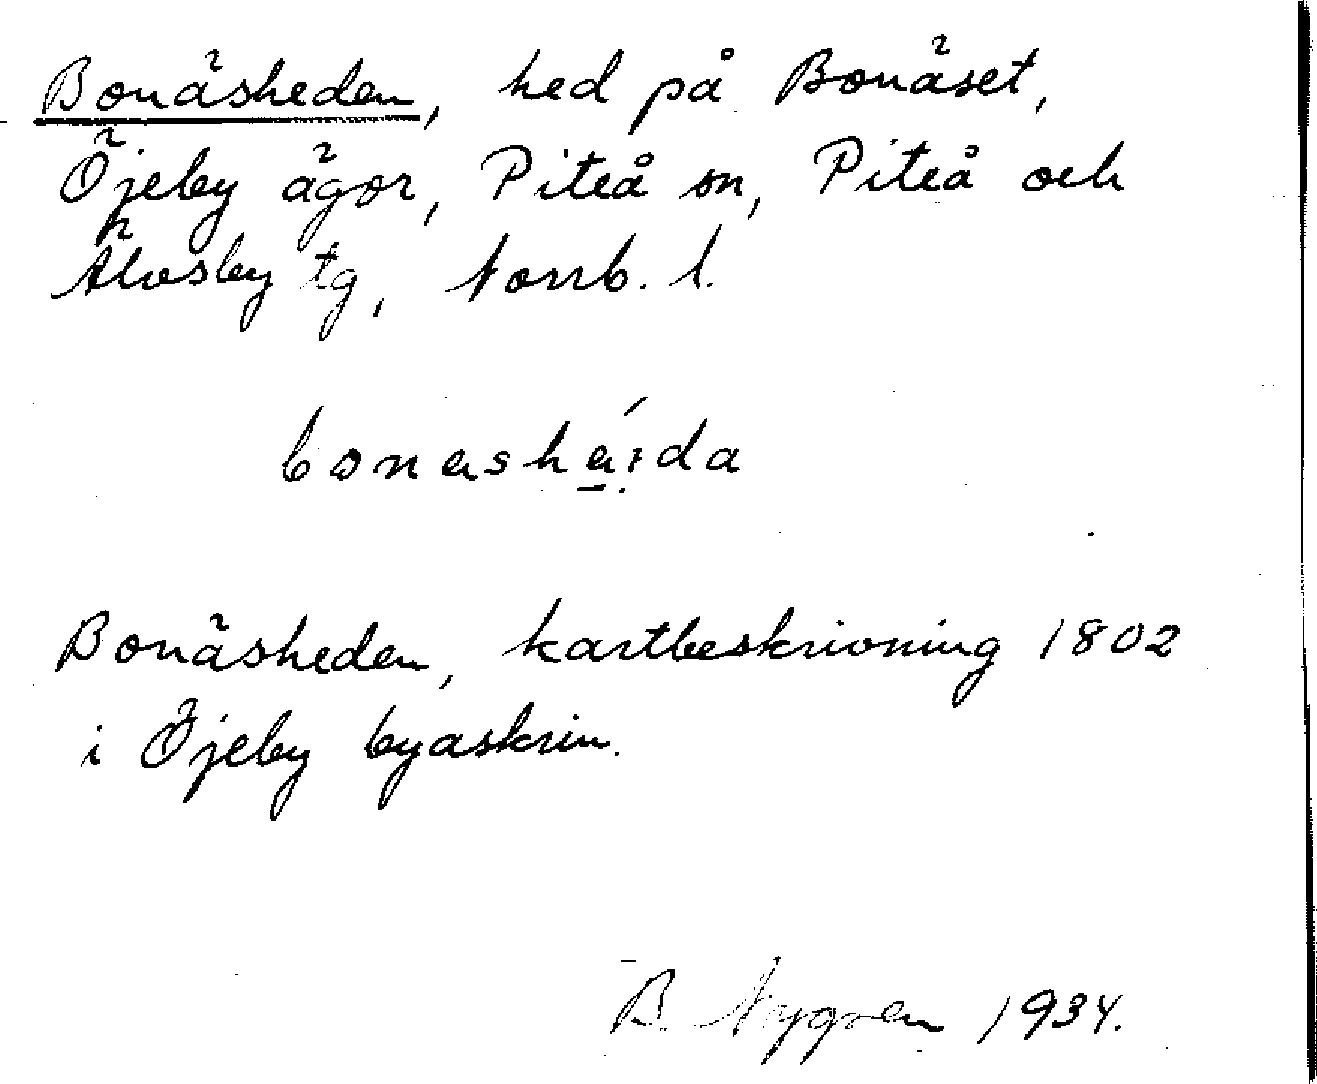 Bonäsheden, hed på Bonäset,
Öjeby ägor, Piteå sn, Piteå och
Älvsby tg, Norrb. l.
bonashä́:da
Bonäsheden, kartbeskrivning 1802
i Öjeby byaskrin.
B. Nygren 1934.